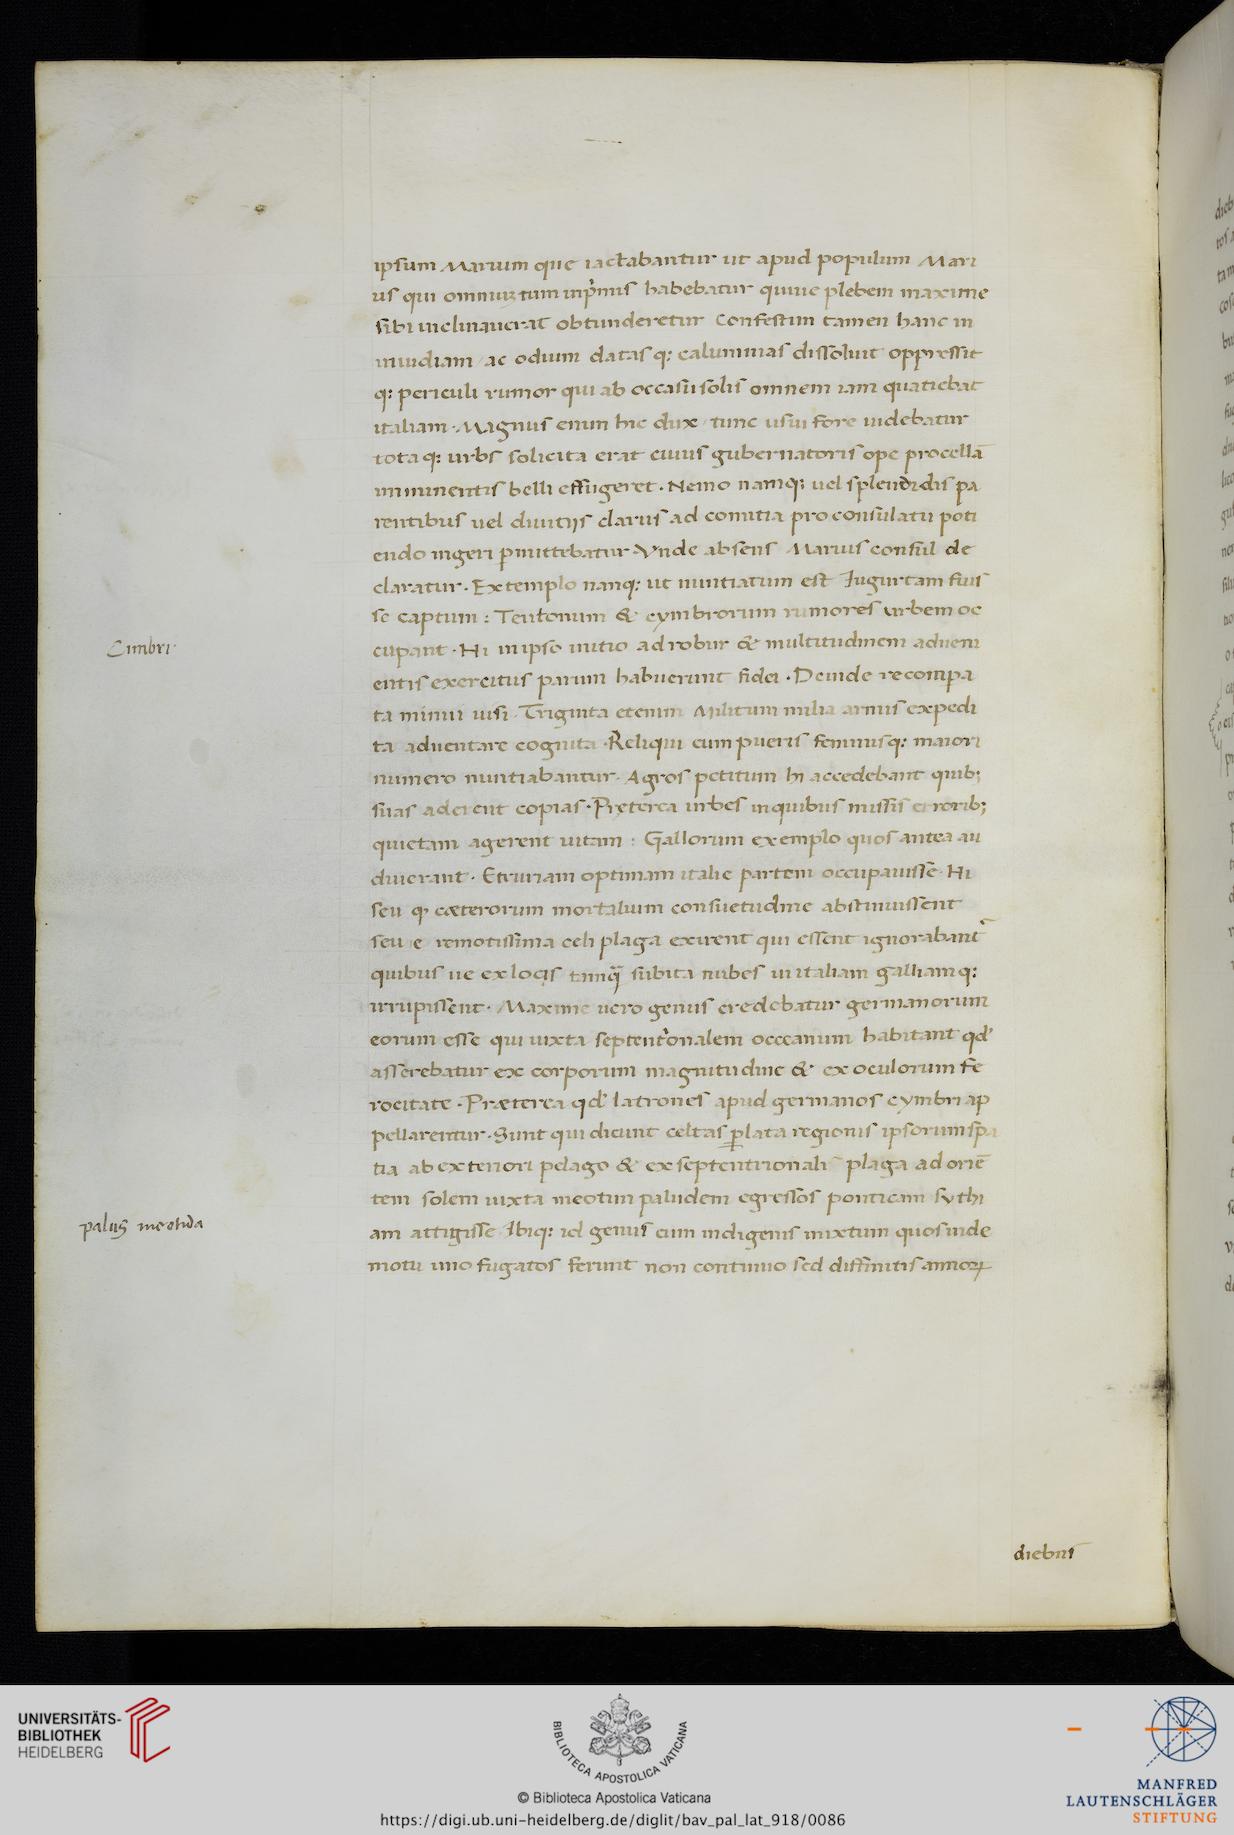 ipsum Marium que iactabantur ut apud populum Mari
us qui omniuz tum inp̄mis habebatur quiue plebem maxime
sibi inclinauerat obtunderetur Confestim tamen hanc in
inuidiam ac odium datas q: calumnias dissoluit oppressit
q: periculi rumor qui ab occasu solis omnem iam quatiebat
italiam. Magnus enim hic dux tunc usui fore uidebatur
tota q: urbs solicita erat cuius gubernatoris ope procellā
imminentis belli effugeret. Nemo namq: uel splendidis pa
rentibus uel diuitijs clarus ad comitia pro consulatu poti
endo ingeri p̱mittebatur Vnde absens Marius consul de
claratur. Extemplo nanq: ut nuntiatum est Iugurtam fuis
se captum: Teutonum & cymbrorum rumores urbem oc
Cimbri
cupant. Hi in ipso initio ad robur & multitudinem adueni
entis exercitus parum habuerunt fidei. Deinde recompa
ta minui uisi. Triginta etenim Militum milia armis expedi
ta aduentare cognita. Reliqui cum pueris feminisq: maiori
numero nuntiabantur. Agros petitum hi accedebant quib;
suas aderent copias. Pręterea urbes in quibus missis errorib;
quietam agerent uitam: Gallorum exemplo quos antea au
diuerant. Etruriam optimam italie partem occupauisse. Hi
seu q̱ cæterorum mortalium consuetudine abstinuissent
seu e remotissima celi plaga exirent qui essent ignorabant᷑
quibus ue ex locis tanq̄ȝ subita nubes in italiam galliamq:
irrupissent. Maxime uero genus credebatur germanorum
eorum esse qui iuxta septentrionalem occeanum habitant qd̕
asserebatur ex corporum magnitudine & ex oculorum fe
rocitate. Præterea qd̕ latrones apud germanos cymbri ap
pellarentur. Sunt qui dicunt celtas p̱lata regionis ipsorum spa
tia ab exteriori pelago & ex septentrionali plaga ad oriē
tem solem iuxta meotim paludem egressos ponticam sythi
palus meotida
am attigisse Ibiq: id genus cum indigenis mixtum quos inde
motu uno fugatos ferunt non continuo sed diffinitis annoꝝ
diebus
UNIVERSITÄTS-
BIBLIOTHEK
HEIDELBERG
BIBLIOTECA APOSTOLICA VATICANA
© Biblioteca Apostolica Vaticana
https://digi.ub.uni-heidelberg.de/diglit/bav_pal_lat_918/0086
MANFRED
LAUTENSCHLÄGER
STIFTUNG